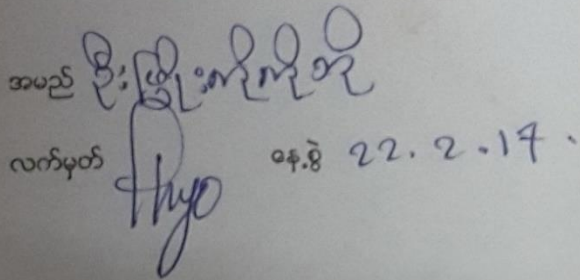 အမည် ဦးဖြိုးကိုကိုဘို
လက်မှတ် Phyo နေ့စွဲ 22.2.17.